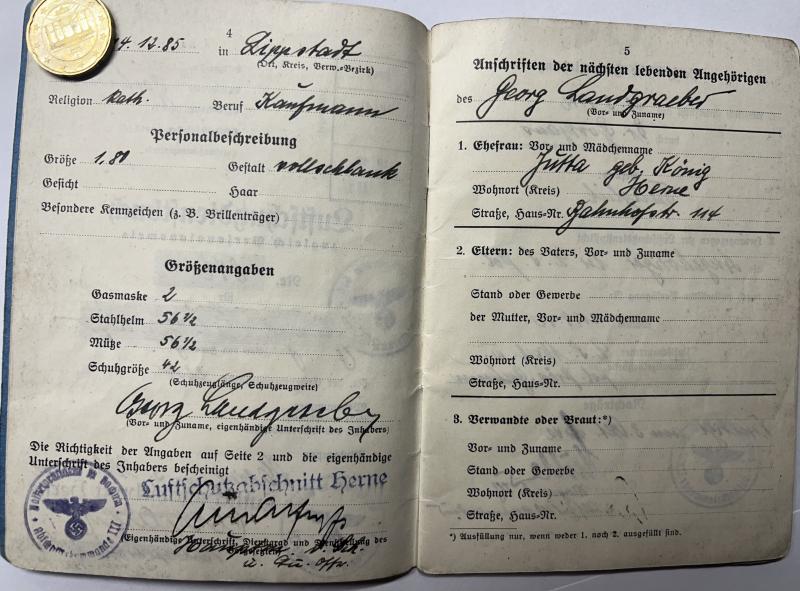 4
14. 12. 85 in Lippstadt
(Ort, Kreis, Verw.-Bezirk)
Religion kath. Beruf Kaufmann
Personalbeschreibung
Größe 1,80 Gestalt vollschlank
Gesicht Haar
Besondere Kennzeichen (z. B. Brillenträger)
Größenangaben
Gasmaske 2
Stahlhelm 56 1/2
Mütze 56 1/2
Schuhgröße 42
(Schuhzeuglänge, Schuhzeugweite)
Georg Landgraeber
(Vor- und Zuname, eigenhändige Unterschrift des Inhabers)
Die Richtigkeit der Angaben auf Seite 2 und die eigenhändige
Unterschrift des Inhabers bescheinigt
Luftschutzabschnitt Herne
(Eigenhändige Unterschrift, Dienstgrad und Dienststellung des
u.
5
Anschriften der nächsten lebenden Angehörigen
des Georg Landgraeber
(Vor- und Zuname)
1. Ehefrau: Vor- und Mädchenname
Jutta geb. König
Wohnort (Kreis) Herne
Straße, Haus-Nr. Bahnhofstr. 114
2. Eltern: des Vaters, Vor- und Zuname
Stand oder Gewerbe
der Mutter, Vor- und Mädchenname
Wohnort (Kreis)
Straße, Haus-Nr.
3. Verwandte oder Braut:*)
Vor- und Zuname
Stand oder Gewerbe
Wohnort (Kreis)
Straße, Haus-Nr.
*) Ausfüllung nur, wenn weder 1. noch 2. ausgefüllt sind.